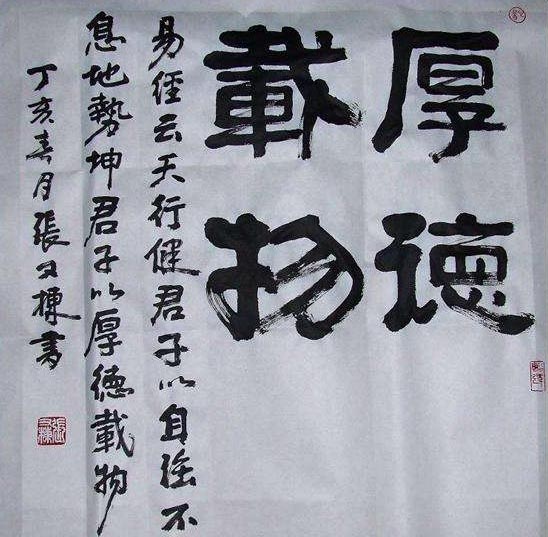 厚德
載物
易經云天行健君子以自強不
息地勢坤君子以厚德載物
丁亥春月張又棟書